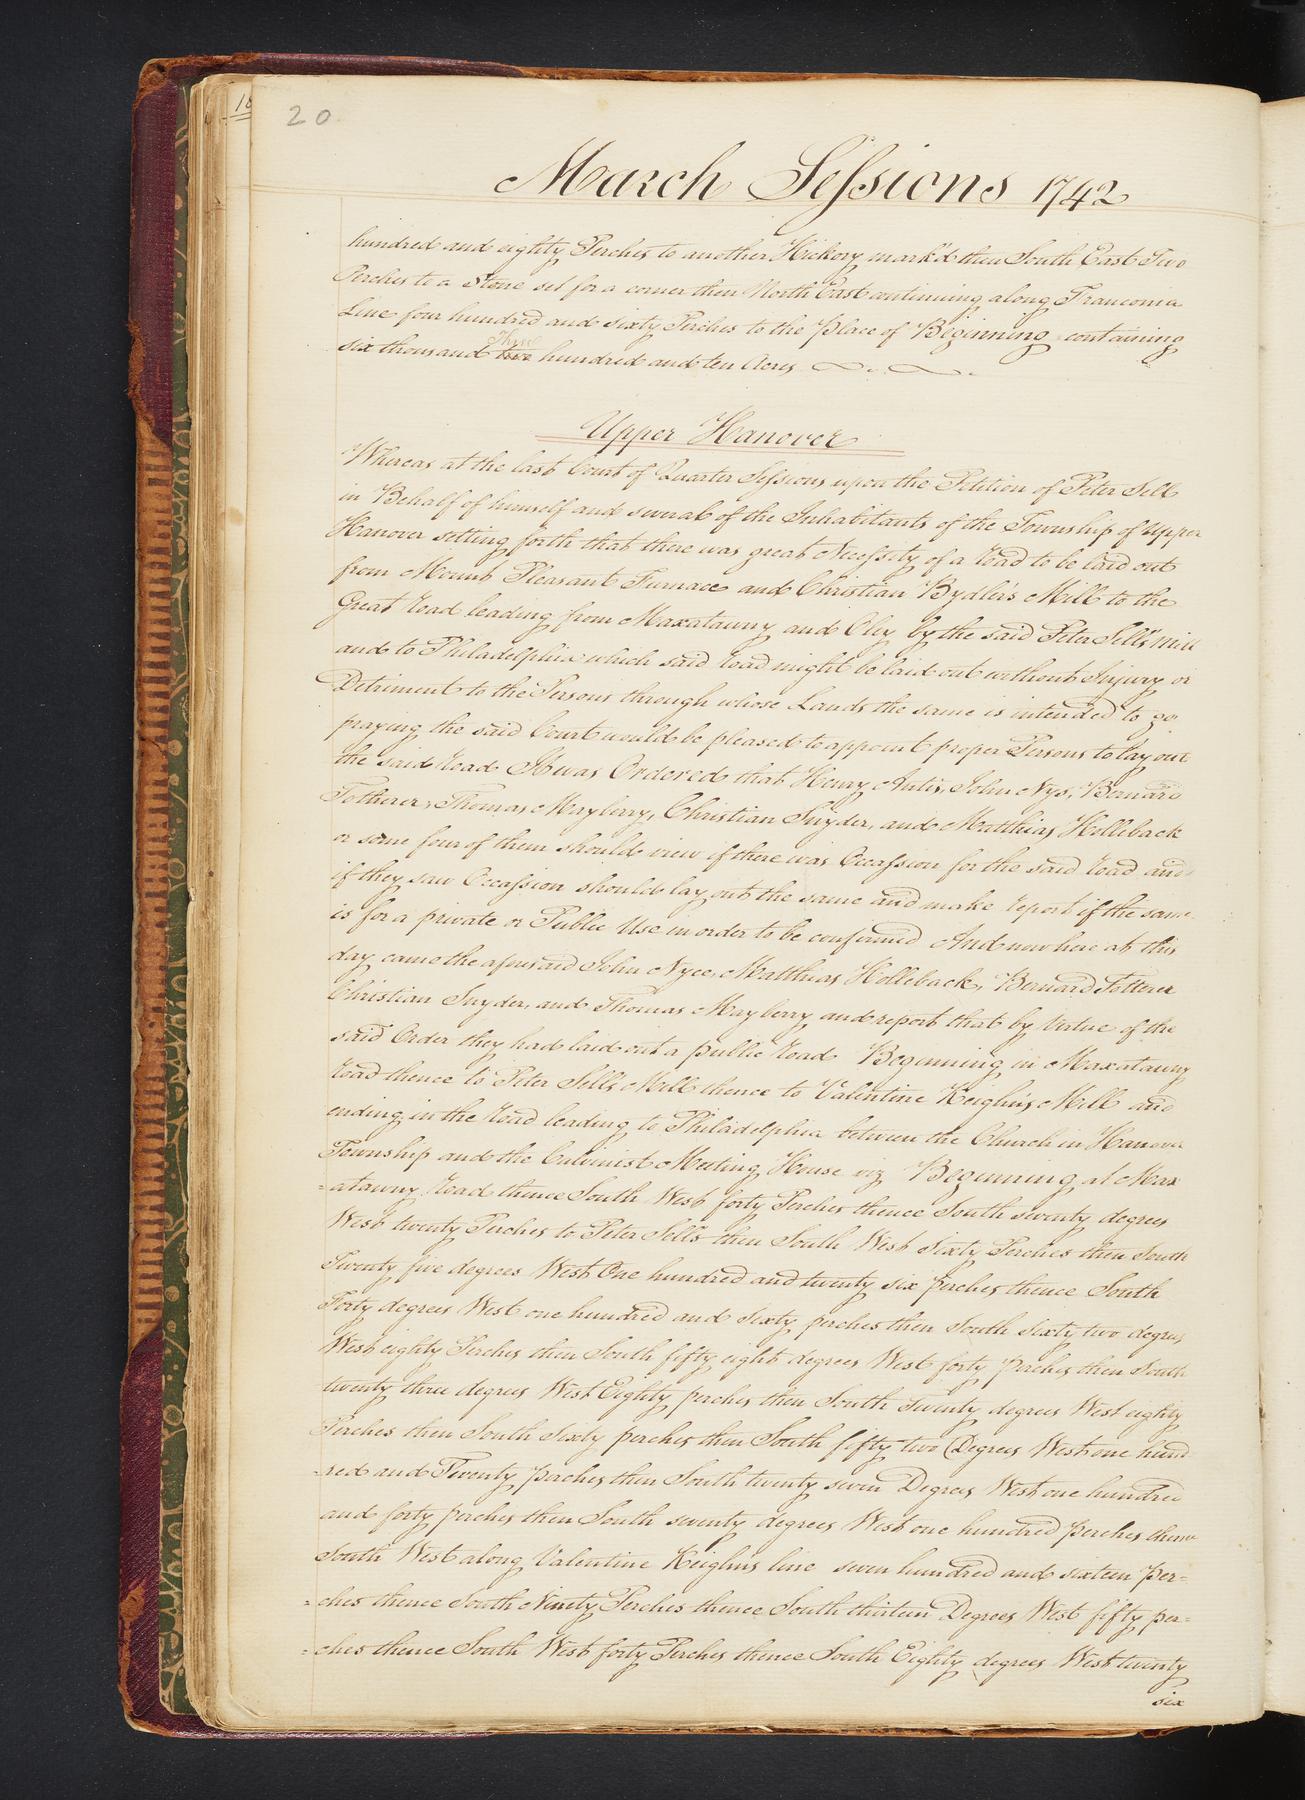 18
20
March Sessions 1742
hundred and eighty Perches to another Hickory mark'd then South East Two
Perches to a Stone set for a corner then North East continuing along Franconia
Line four hundred and sixty Perches to the place of Beginning containing
Three
six thousand two hundred and ten Acres
Upper Hanover
Whereas at the last Court of Quarter Sessions upon the Petition of Peter Sell
in Behalf of himself and several of the Inhabitants of the Township of Upper
Hanover setting forth that there was great Necessity of a Road to be laid out
from Mount Pleasant Furnace and Christian Bydler's Mill to the
Great Road leading from Maxatawny and Oley by the said Peter Sell's Mill
and to Philadelphia which said Road might be laid out without Injury or
Detriment to the Persons through whose Lands the same is intended to go
praying the said Court would be pleased to appoint proper Persons to lay out
the said Road It was Ordered that Henry Antis, John Nys, Bernard
Totherer, Thomas Mayberry, Christian Snyder, and Matthias Holleback
or some four of them should view if there was Occassion for the said Road and
if they saw Occassion should lay out the same and make report if the same
is for a private or Public Use in order to be confirmed And now here at this
day came the aforesaid John Nyce, Matthias Holleback, Bernard Totterer
Christian Snyder, and Thomas Mayberry and report that by Virtue of the
said Order they had laid out a public Road Beginning in Maxatawny
Road thence to Peter Sells Mill thence to Valentine Keighn's Mill and
ending in the Road leading to Philadelphia between the Church in Hanover
Township and the Calvinist Meeting House viz Beginning at Max
=atawny Road thence South West forty Perches thence South seventy degrees
West twenty Perches to Peter Sells then South West Sixty Perches then South
Twenty five degrees West One hundred and twenty six perches thence South
Forty degrees West one hundred and sixty perches then South sixty two degrees
West eighty Perches then South fifty eight degrees West forty perches then South
twenty three degrees West Eighty perches then South Twenty degrees West eighty
Perches then South Sixty perches then South fifty two Degrees West one hund
=red and Twenty perches then South twenty seven Degrees West one hundred
and forty perches then South seventy degrees West one hundred perches thence
South West along Valentine Keighn's line seven hundred and sixteen Per=
=ches thence South Ninety Perches thence South thirteen Degrees West fifty per=
=ches thence South West forty Perches thence South Eighty degrees West twenty
six